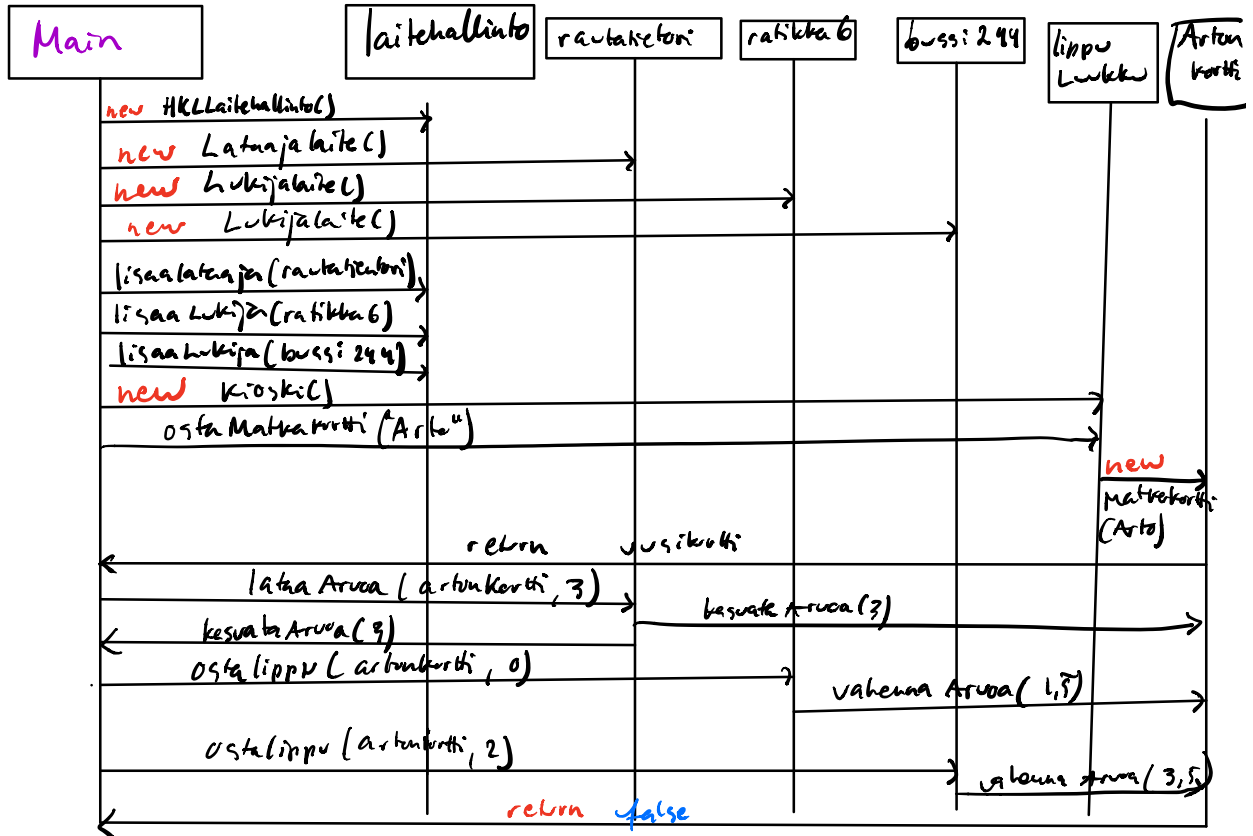 Main
laitehallinto
rautatietori
ratikka 6
bussi 244
lippu
Luukku
Arton
kortti
new HKLLaitehallinto()
new Lataajalaite()
new Lukijalaite()
new Lukijalaite()
lisaalataaja(rautatientori)
lisaa Lukija(ratikka6)
lisaaLukija(bussi 244)
new Kioski()
osta Matkakortti ("Arto")
new
Matkakortti
(Arto)
return uusikortti
lataa Arvoa (artonkortti, 3)
kasvata Arvoa(3)
kasvata Arvoa(3)
osta lippu (artonkortti, 0)
vahenna Arvoa( 1,5)
ostalippu (artonkortti, 2)
vahenna Arvoa( 3,5)
return false